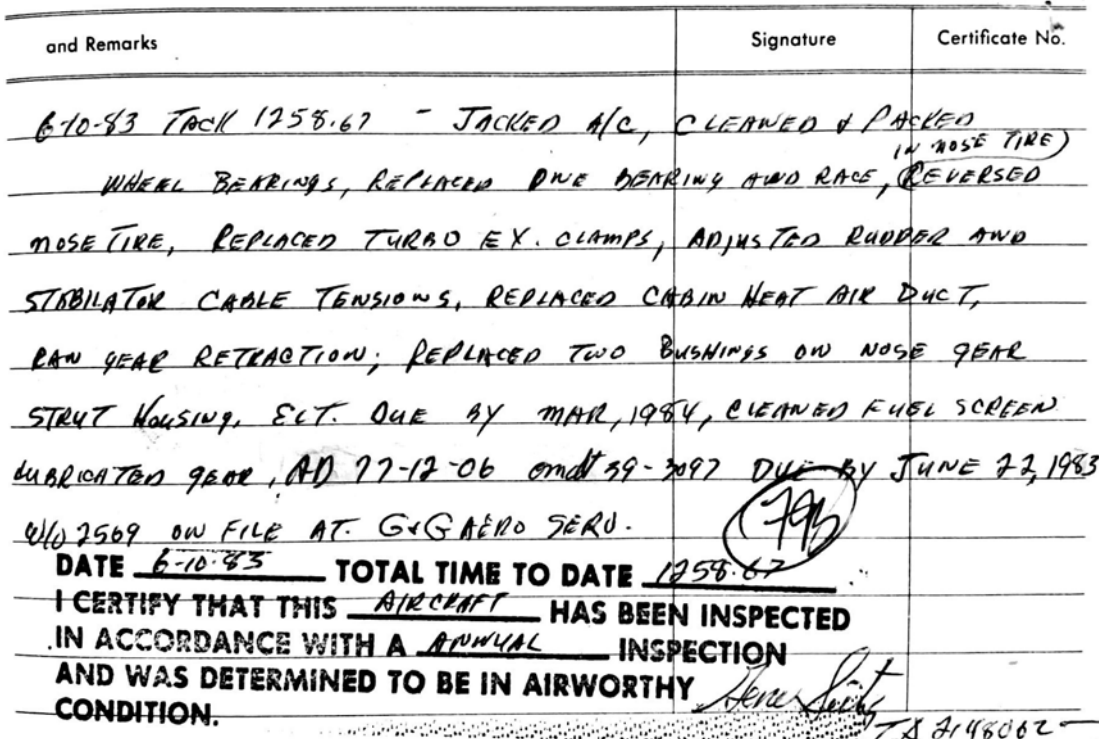 and Remarks Signature Certificate No.
6-10-83 TACK 1258.67 - JACKED A/C, CLEANED & PACKED
IN NOSE TIRE)
WHEEL BEARINGS, REPLACED ONE BEARING AND RACE, REVERSED
NOSE TIRE, REPLACED TURBO EX. CLAMPS, ADJUSTED RUDDER AND
STABILATOR CABLE TENSIONS, REPLACED CABIN HEAT AIR DUCT,
RAN GEAR RETRACTION; REPLACED TWO BUSHINGS ON NOSE GEAR
STRUT HOUSING, ELT. DUE BY MAR, 1984, CLEANED FUEL SCREEN
LUBRICATED GEAR, AD 77-12-06 amdt 39-3097 DUE BY JUNE 22, 1983
W/O 2569 ON FILE AT. G&G AERO SERV.
DATE 6-10-83 TOTAL TIME TO DATE 1258.67
I CERTIFY THAT THIS AIRCRAFT HAS BEEN INSPECTED
IN ACCORDANCE WITH A ANNUAL INSPECTION
AND WAS DETERMINED TO BE IN AIRWORTHY
CONDITION.
Gene